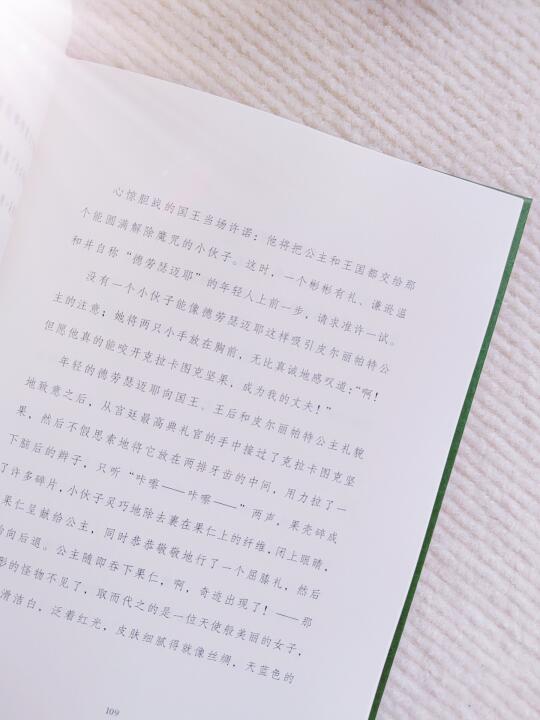 心惊胆战的国王当场许诺：他将把公主和王国都交给那
个能圆满解除魔咒的小伙子。这时，一个彬彬有礼、谦逊温
和并自称“德劳瑟迈耶”的年轻人上前一步，请求准许一试。
没有一个小伙子能像德劳瑟迈耶这样吸引皮尔丽帕特公
主的注意；她将两只小手放在胸前，无比真诚地感叹道：“啊！
但愿他真的能咬开克拉卡图克坚果，成为我的丈夫！”
年轻的德劳瑟迈耶向国王、王后和皮尔丽帕特公主礼貌
地致意之后，从宫廷最高典礼官的手中接过了克拉卡图克坚
果，然后不假思索地将它放在两排牙齿的中间，用力拉了一
下脑后的辫子，只听“咔嚓——咔嚓——”两声，果壳碎成
了许多碎片。小伙子灵巧地除去裹在果仁上的纤维，闭上眼睛，
果仁呈献给公主，同时恭恭敬敬地行了一个屈膝礼，然后
向后退。公主随即吞下果仁，啊，奇迹出现了！——那
形的怪物不见了，取而代之的是一位天使般美丽的女子，
滑洁白，泛着红光，皮肤细腻得就像丝绸，天蓝色的
109